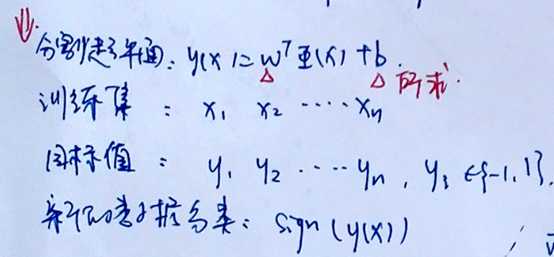 分割超平面：y(x)=wᵀΦ(x)+b. 所求.
训练集 ： x₁ x₂ ····· xₙ
目标值 ： y₁ y₂ ····· yₙ , yᵢ ∈{-1,1}.
新的数据分类：sign(y(x))